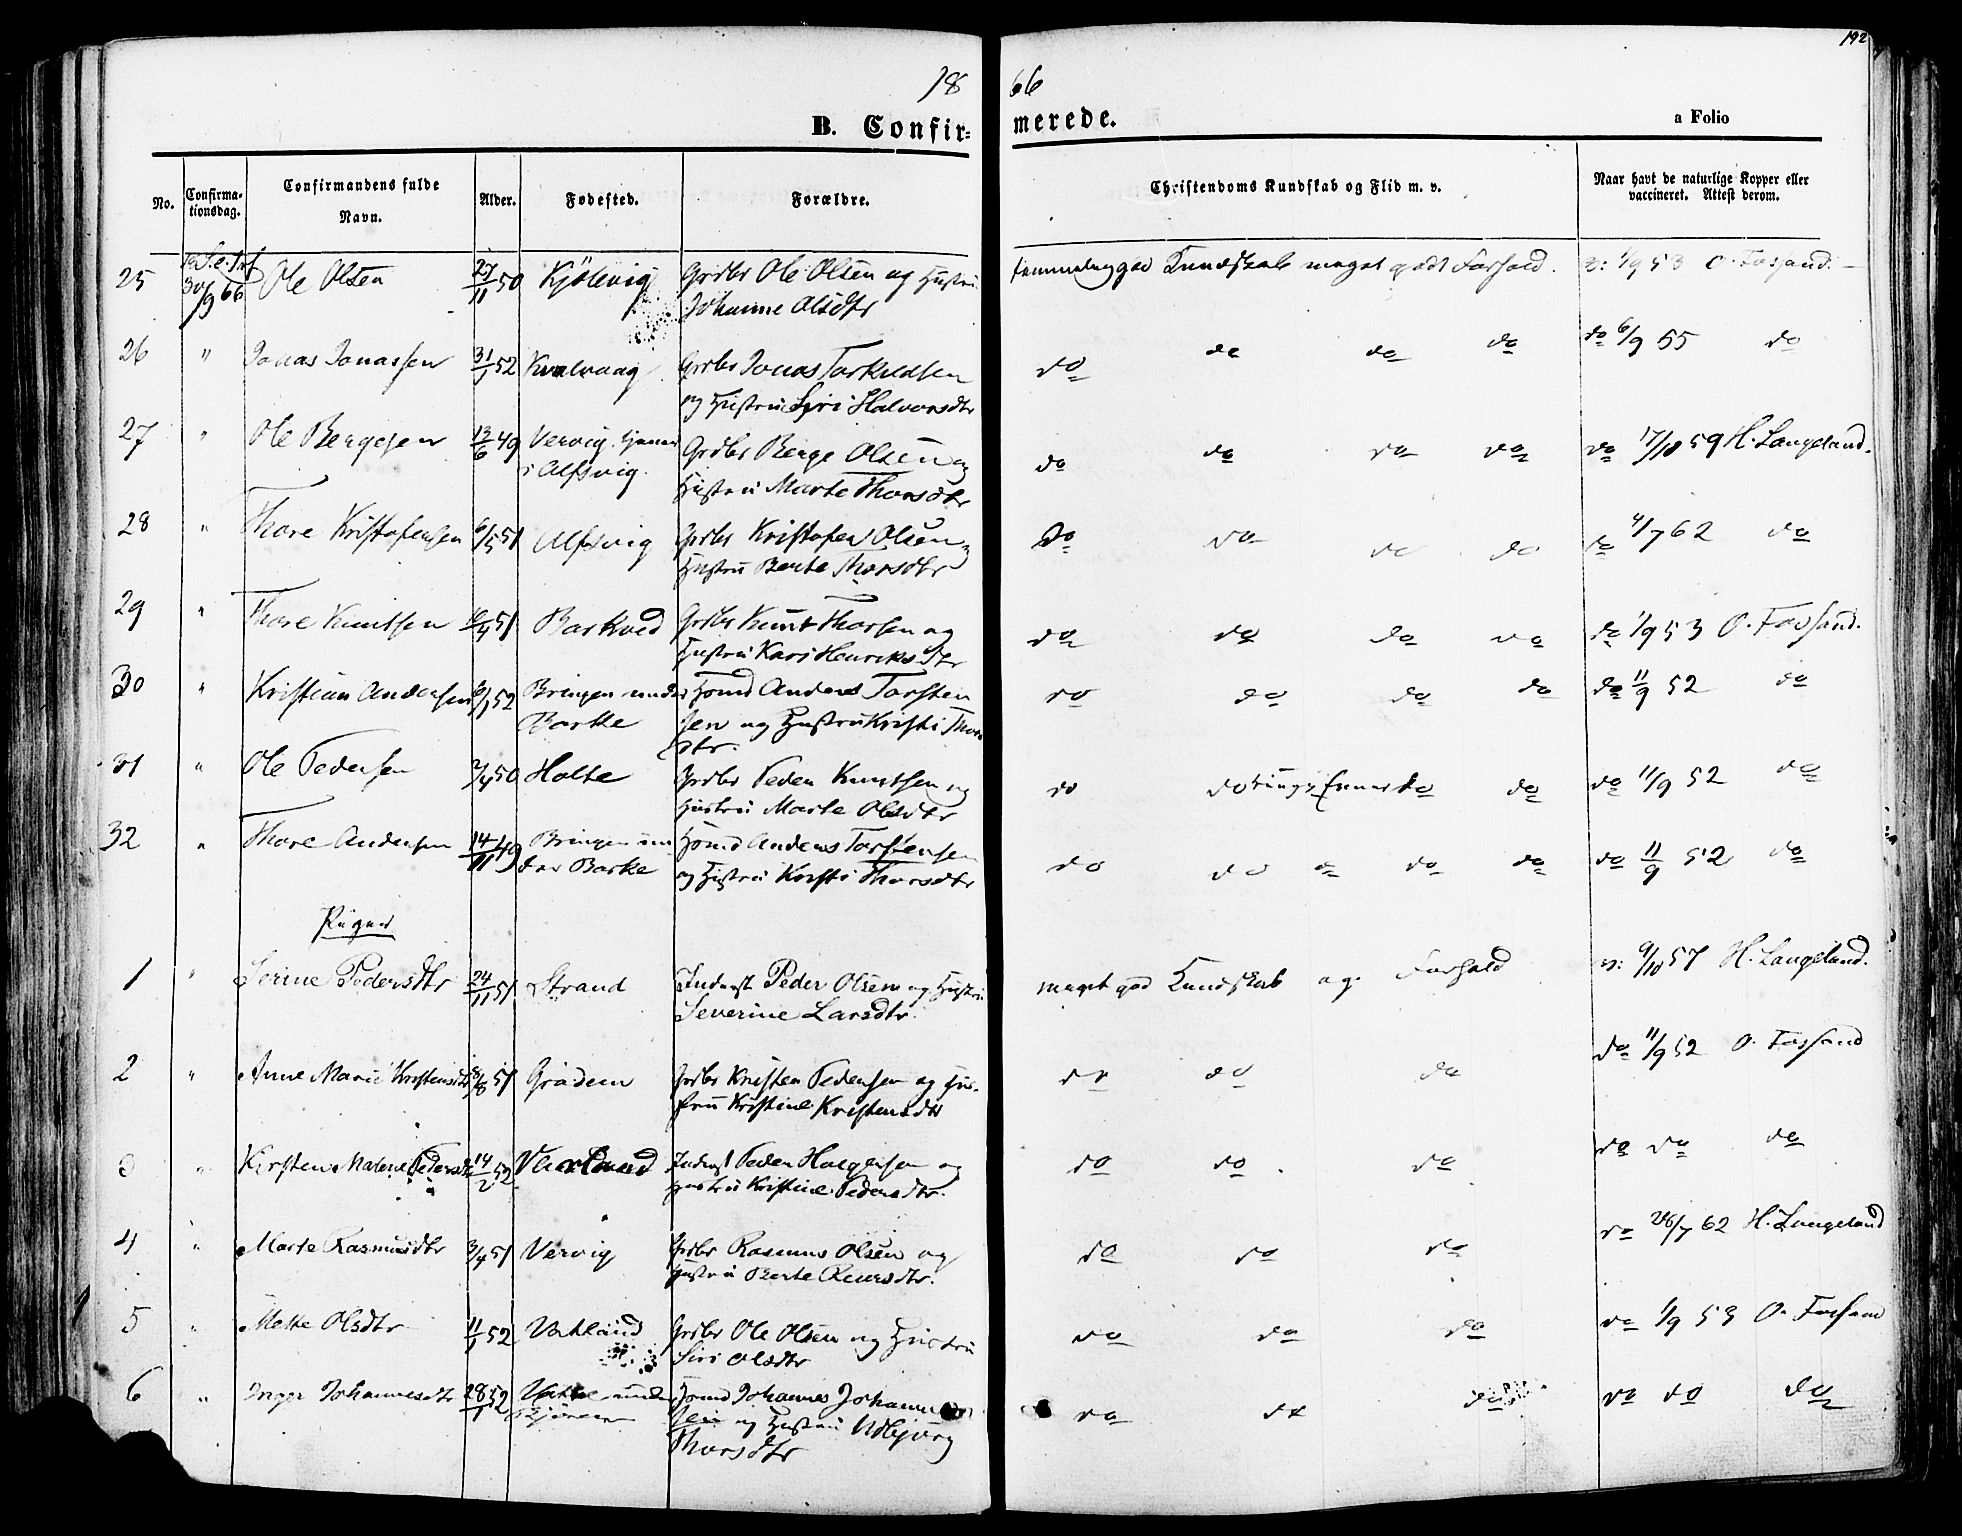 192
18 66
B. Confir= merede.
a Folio
No. Confirma-tionsdag. Confirmandens fulde Navn. Alder. Fødested. Forældre. Christendoms Kundskab og Flid m. v. Naar havt de naturlige Kopper eller vaccineret. Attest derom.
25 30/9 66 Ole Olsen 27/11 50 Kjölevig Grdbr Ole Olsen og Hustru Kundskab meget godt Forhold. v: 1/9 53 O. Fossand.
Johanne Olsdtr
26 " Jonas Jonassen 31/1 52 Kvalvaag Grdbr Jonas Torkildsen do do do do do 6/9 55 do
og Hustru Siri Halvorsdtr
27 " Ole Bergesen 13/6 49 Vervig, tjener Grdbr Berge Olsen og do do do do do 17/10 59 H. Langeland.
i Alfsvig. Hustru Marte Thorsdtr
28 " Thore Kristofersen 6/5 51 Alfsvig Grdbr Kristofer Olsen og do do do do do 4/7 62 do
Hustru Berte Thorsdtr
29 " Thore Knutsen 51 Barkved Grdbr Knut Thorsen og do do do do do 1/9 53 O. Fossand.
Hustru Kari Henriksdtr
30 " Kristian Andersen 6/1 52 Bringen under Huusmd Anders Torsten do do do do do 11/9 52 do
Barke sen og Hustru Kristi Thors
dtr.
31 " Ole Pedersen 2/4 50 Holte Grdbr Peder Knutsen og do do do do do 11/9 52 do
Hustru Marte Olsdtr
32 " Thore Andersen 14/11 49 Bringen un Huusmd Anders Torstensen do do do do do 11/9 52 do
der Barke og Hustru Kristi Thorsdtr
Piger
1 " Serine Pedersdtr 24/11 51 Strand Inderst Peder Olsen og Hustru meget god Kundskab og Forhold v: 9/10 57 H. Langeland.
Severine Larsdtr.
2 " Anne Marie Kristensdtr 8/8 51 Gradem Grdbr Kristen Pedersen og Hus- do do do do 11/9 52 O. Fossand
tru Kristine Kristensdtr
3 " Kirsten Malene Pedersdtr 14/2 52 Vaeland Inderst Peder Holgersen og do do do do do do
Hustru Kristine Pedersdtr.
4 " Marte Rasmusdtr 3/4 51 Vervig Grdbr Rasmus Olsen og do do do do 26/7 62 H. Langeland
Hustru Berte
5 " Mette Olsdtr 11/1 52 Vatland Grdbr Ole Olsen og Hustru do do do do 1/9 53 O. Fossand
Siri Olsdtr
6 " Inger Johannesdtr 28/1 52 under Huusmd Johannes Johannes do do do do do do
sen og Hustru Udbjørg
Thorsdtr